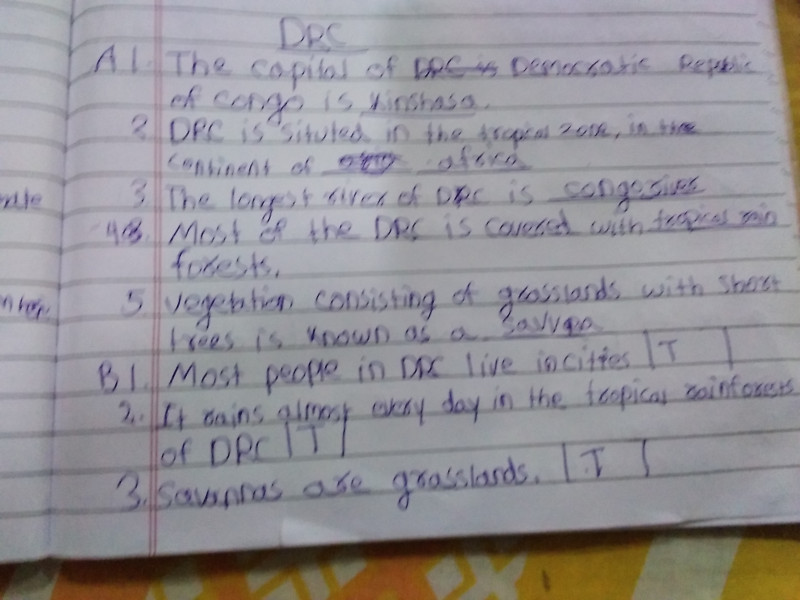 DRC
A1. The capital of DRC is Democratic Republic
of Congo is Kinshasa.
2 DRC is situled in the tropical zone, in the
Continent of africa
3. The longest river of DRC is congo river
43. Most of the DRC is covered with tropical rain
forests.
5 vegetation consisting of grasslands with short
trees is known as a
B1. Most people in DRC live in cities | T |
2. It rains almost every day in the tropical rainforests
of DRC | T |
3. Savannas are grasslands. | T |